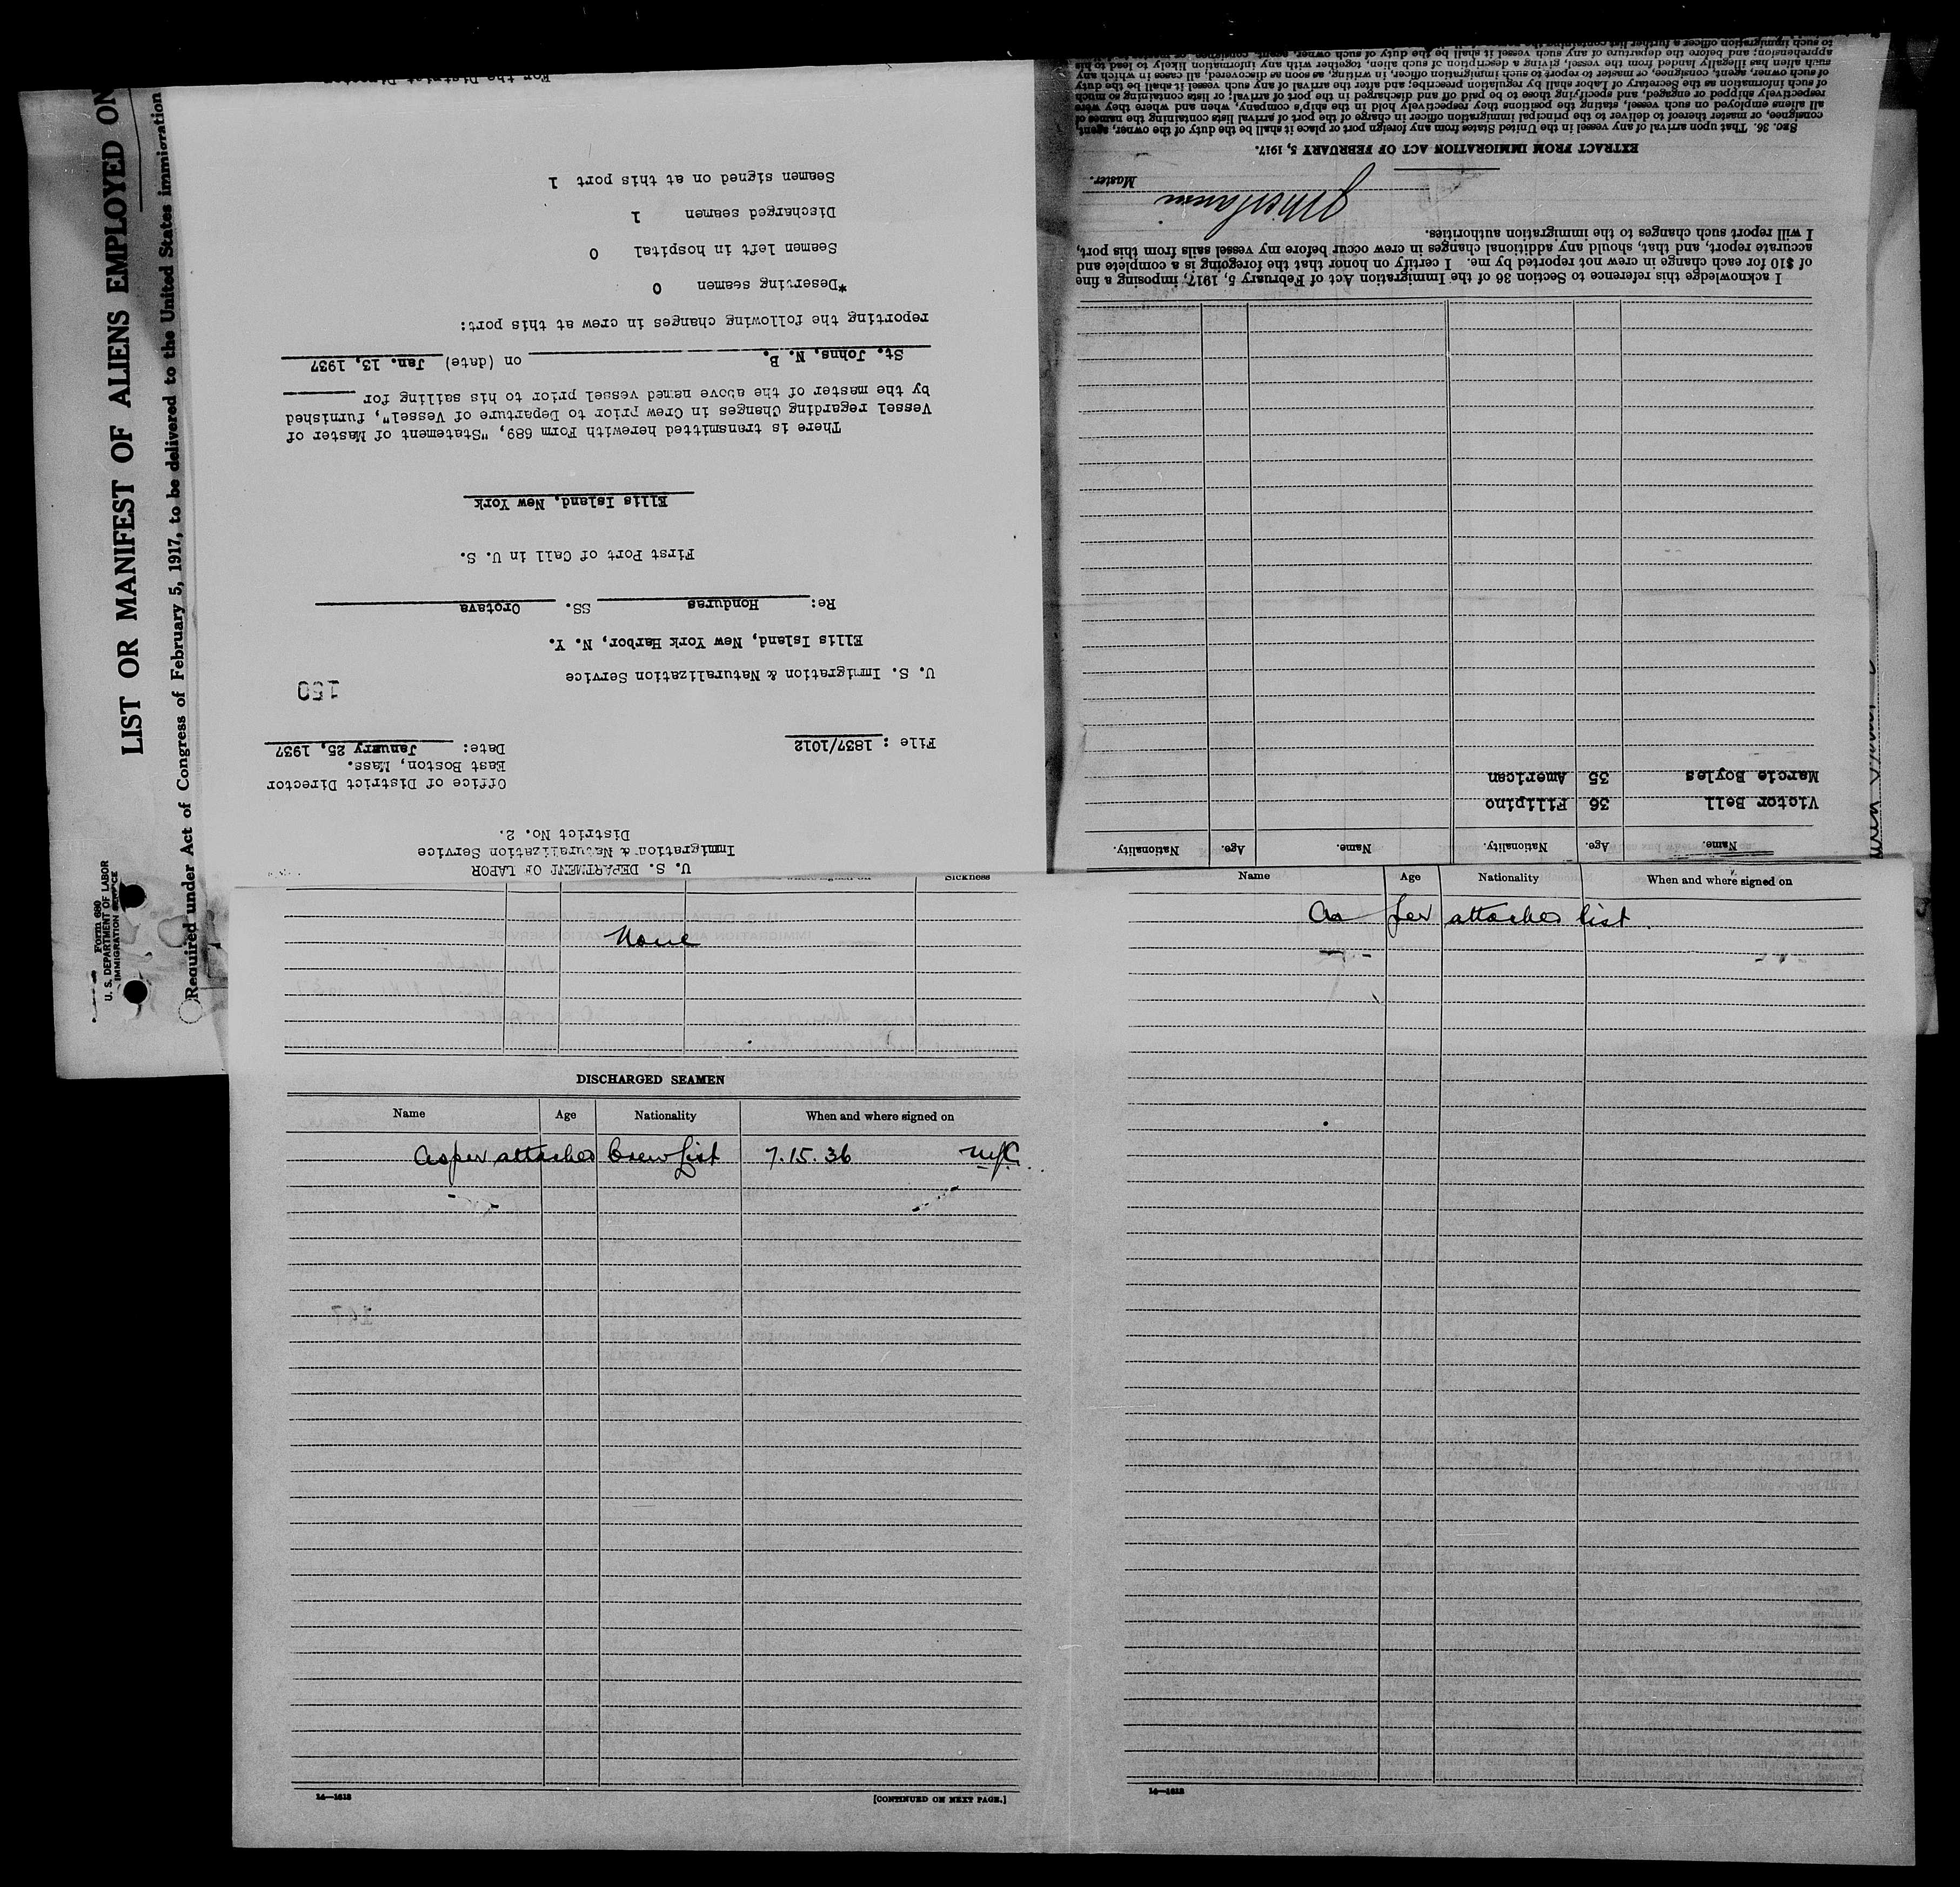 LIST OR MANIFEST OF ALIENS EMPLOYED ON
Required under Act of Congress of February 5, 1917, to be delivered to the United States immigration
Form 680
U. S. DEPARTMENT OF LABOR
IMMIGRATION SERVICE
U. S. DEPARTMENT OF LABOR
Immigration & Naturalization Service
District No. 2.
Office of District Director
East Boston, Mass.
File : 1837/1012
Date: January 25, 1937
150
U. S. Immigration & Naturalization Service
Ellis Island, New York Harbor, N. Y.
Re: Honduras SS. Orotava
First Port of Call in U. S.
Ellis Island, New York
There is transmitted herewith Form 689, "Statement of Master of
Vessel regarding Changes in Crew prior to Departure of Vessel", furnished
by the master of the above named vessel prior to his sailing for
St. Johns, N. B. on (date) Jan. 13, 1937
reporting the following changes in crew at this port:
*Deserving seamen 0
Seamen left in hospital 0
Discharged seamen 1
Seamen signed on at this port 1
For the District Director
Name. Age. Nationality. Name. Age. Nationality.
Victor Bell 36 Filipino
Marcie Boyles 35 American
I acknowledge this reference to Section 36 of the Immigration Act of February 5, 1917, imposing a fine
of $10 for each change in crew not reported by me. I certify on honor that the foregoing is a complete and
accurate report, and that, should any additional changes in crew occur before my vessel sails from this port,
I will report such changes to the immigration authorities.
Master.
EXTRACT FROM IMMIGRATION ACT OF FEBRUARY 5, 1917.
SEC. 36. That upon arrival of any vessel in the United States from any foreign port or place it shall be the duty of the owner, agent,
consignee, or master thereof to deliver to the principal immigration officer in charge of the port of arrival lists containing the names of
all aliens employed on such vessel, stating the positions they respectively hold in the ship's company, when and where they were
respectively shipped or engaged, and specifying those to be paid off and discharged in the port of arrival; or lists containing so much
of such information as the Secretary of Labor shall by regulation prescribe; and after the arrival of any such vessel it shall be the duty
of such owner, agent, consignee, or master to report to such immigration officer, in writing, as soon as discovered, all cases in which any
such alien has illegally landed from the vessel, giving a description of such alien, together with any information likely to lead to his
apprehension; and before the departure of any such vessel it shall be the duty of such owner, agent, consignee, or master
to such immigration officer a further list containing the
Sickness
None
DISCHARGED SEAMEN
Name Age Nationality When and where signed on
As per attached Crew List 7.15.36 NYC
14—1613
[CONTINUED ON NEXT PAGE.]
Name Age Nationality When and where signed on
As per attached list
14—1613